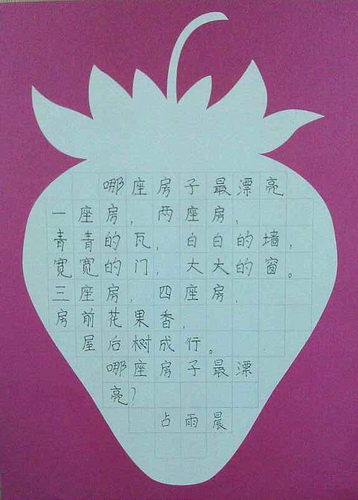 哪座房子最漂亮
一座房，两座房，
青青的瓦，白白的墙，
宽宽的门，大大的窗。
三座房，四座房，
房前花果香，
屋后树成行。
哪座房子最漂
亮？
占雨晨